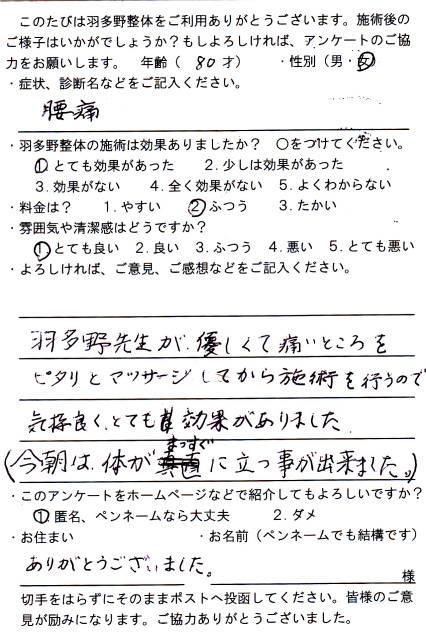 このたびは羽多野整体をご利用ありがとうございます。施術後の
ご様子はいかがでしょうか？もしよろしければ、アンケートのご協
力をお願いします。 年齢（ 80 才） ・性別（男・女）
・症状、診断名などをご記入ください。
腰痛
・羽多野整体の施術は効果ありましたか？ ○をつけてください。
1. とても効果があった 2. 少しは効果があった
3. 効果がない 4. 全く効果がない 5. よくわからない
・料金は？ 1. やすい 2. ふつう 3. たかい
・雰囲気や清潔感はどうですか？
1. とても良い 2. 良い 3. ふつう 4. 悪い 5. とても悪い
・よろしければ、ご意見、ご感想などをご記入ください。
羽多野先生が、優しくて痛いところを
ピタリとマッサージしてから施術を行うので
気持良く、とても効果がありました
(今朝は、体がまっすぐに立つ事が出来ました。)
・このアンケートをホームページなどで紹介してもよろしいですか？
1. 匿名、ペンネームなら大丈夫 2. ダメ
・お住まい ・お名前（ペンネームでも結構です）
ありがとうございました。
様
切手をはらずにそのままポストへ投函してください。皆様のご意
見が励みになります。ご協力ありがとうございました。